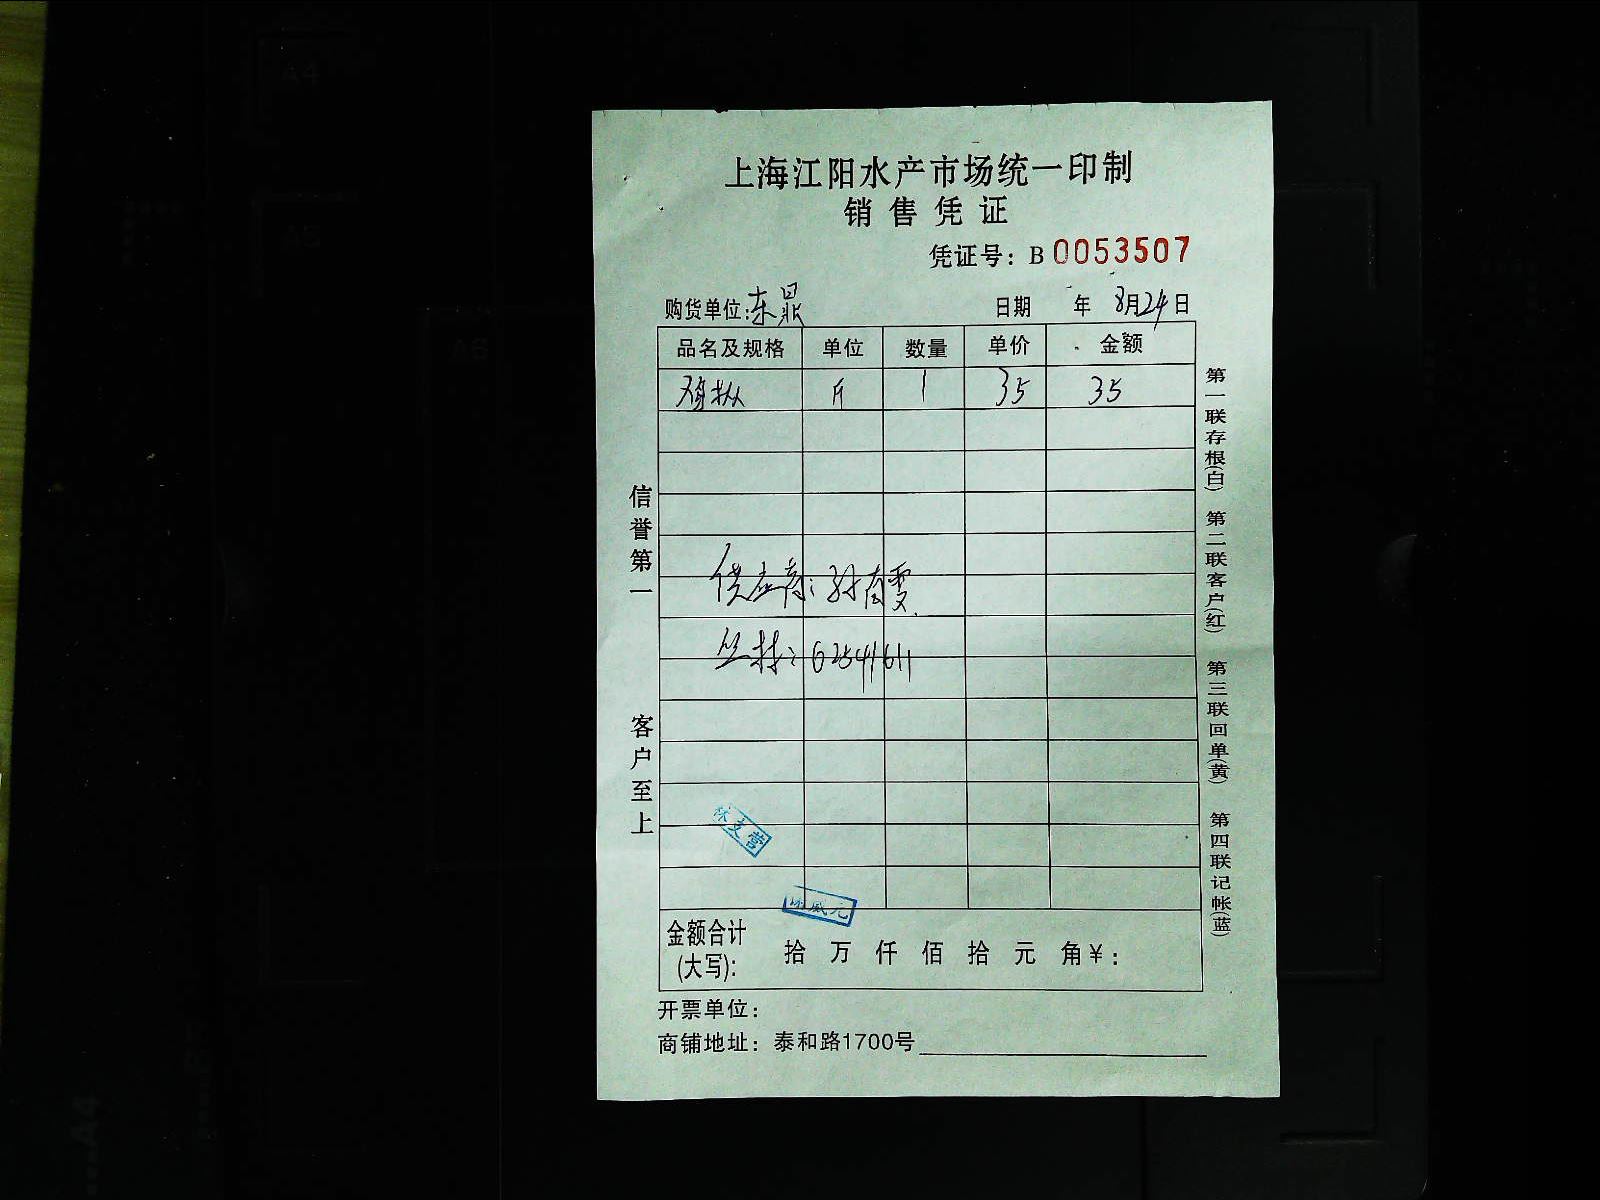 上海江阳水产市场统一印制
销售凭证
凭证号：B 0053507
购货单位：东鼎 日期 年 8月24日
品名及规格 单位 数量 单价 金额
鸡枞 斤 1 35 35
供应商：孙
62541611
金额合计(大写)： 拾 万 仟 佰 拾 元 角 ¥：
开票单位：
商铺地址：泰和路1700号
信誉第一
客户至上
第一联存根(白) 第二联客户(红) 第三联回单(黄) 第四联记帐(蓝)